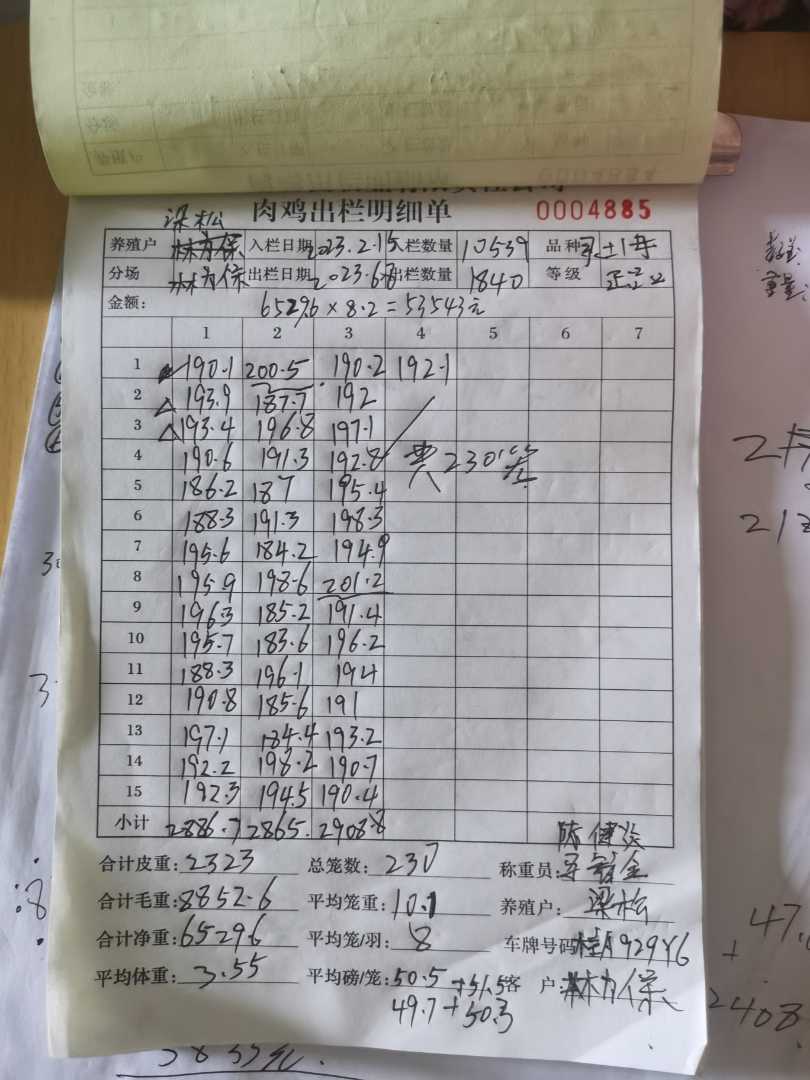 梁松
肉鸡出栏明细单 0004885
养殖户 林为保 入栏日期 2023.2.15 入栏数量 10539 品种
分场 林为保 出栏日期 2023.6.8 出栏数量 1840 等级 正品
金额: 6529.6 × 8.2 = 53543元
1 2 3 4 5 6 7
1 190.1 200.5 190.2 192.1
2 193.9 187.7 192
3 193.4 196.8 197.1
4 190.6 191.3 192.8 共230笼
5 186.2 187 195.4
6 188.3 191.3 198.3
7 195.6 184.2 194.9
8 195.9 198.6 201.2
9 196.3 185.2 191.4
10 195.7 183.6 196.2
11 188.3 196.1 194
12 190.8 185.6 191
13 197.1 184.4 193.2
14 192.2 198.2 190.7
15 192.3 194.5 190.4
小计 2886.7 2865. 2908.8
合计皮重: 2323 总笼数: 230 称重员:
合计毛重: 8852.6 平均笼重: 10.1 养殖户: 梁松
合计净重: 6529.6 平均笼/羽: 8 车牌号码: 桂A929Y6
平均体重: 3.55 平均磅/笼: 50.5+51.5 客户: 林为保
49.7+50.3
47.
+
2408